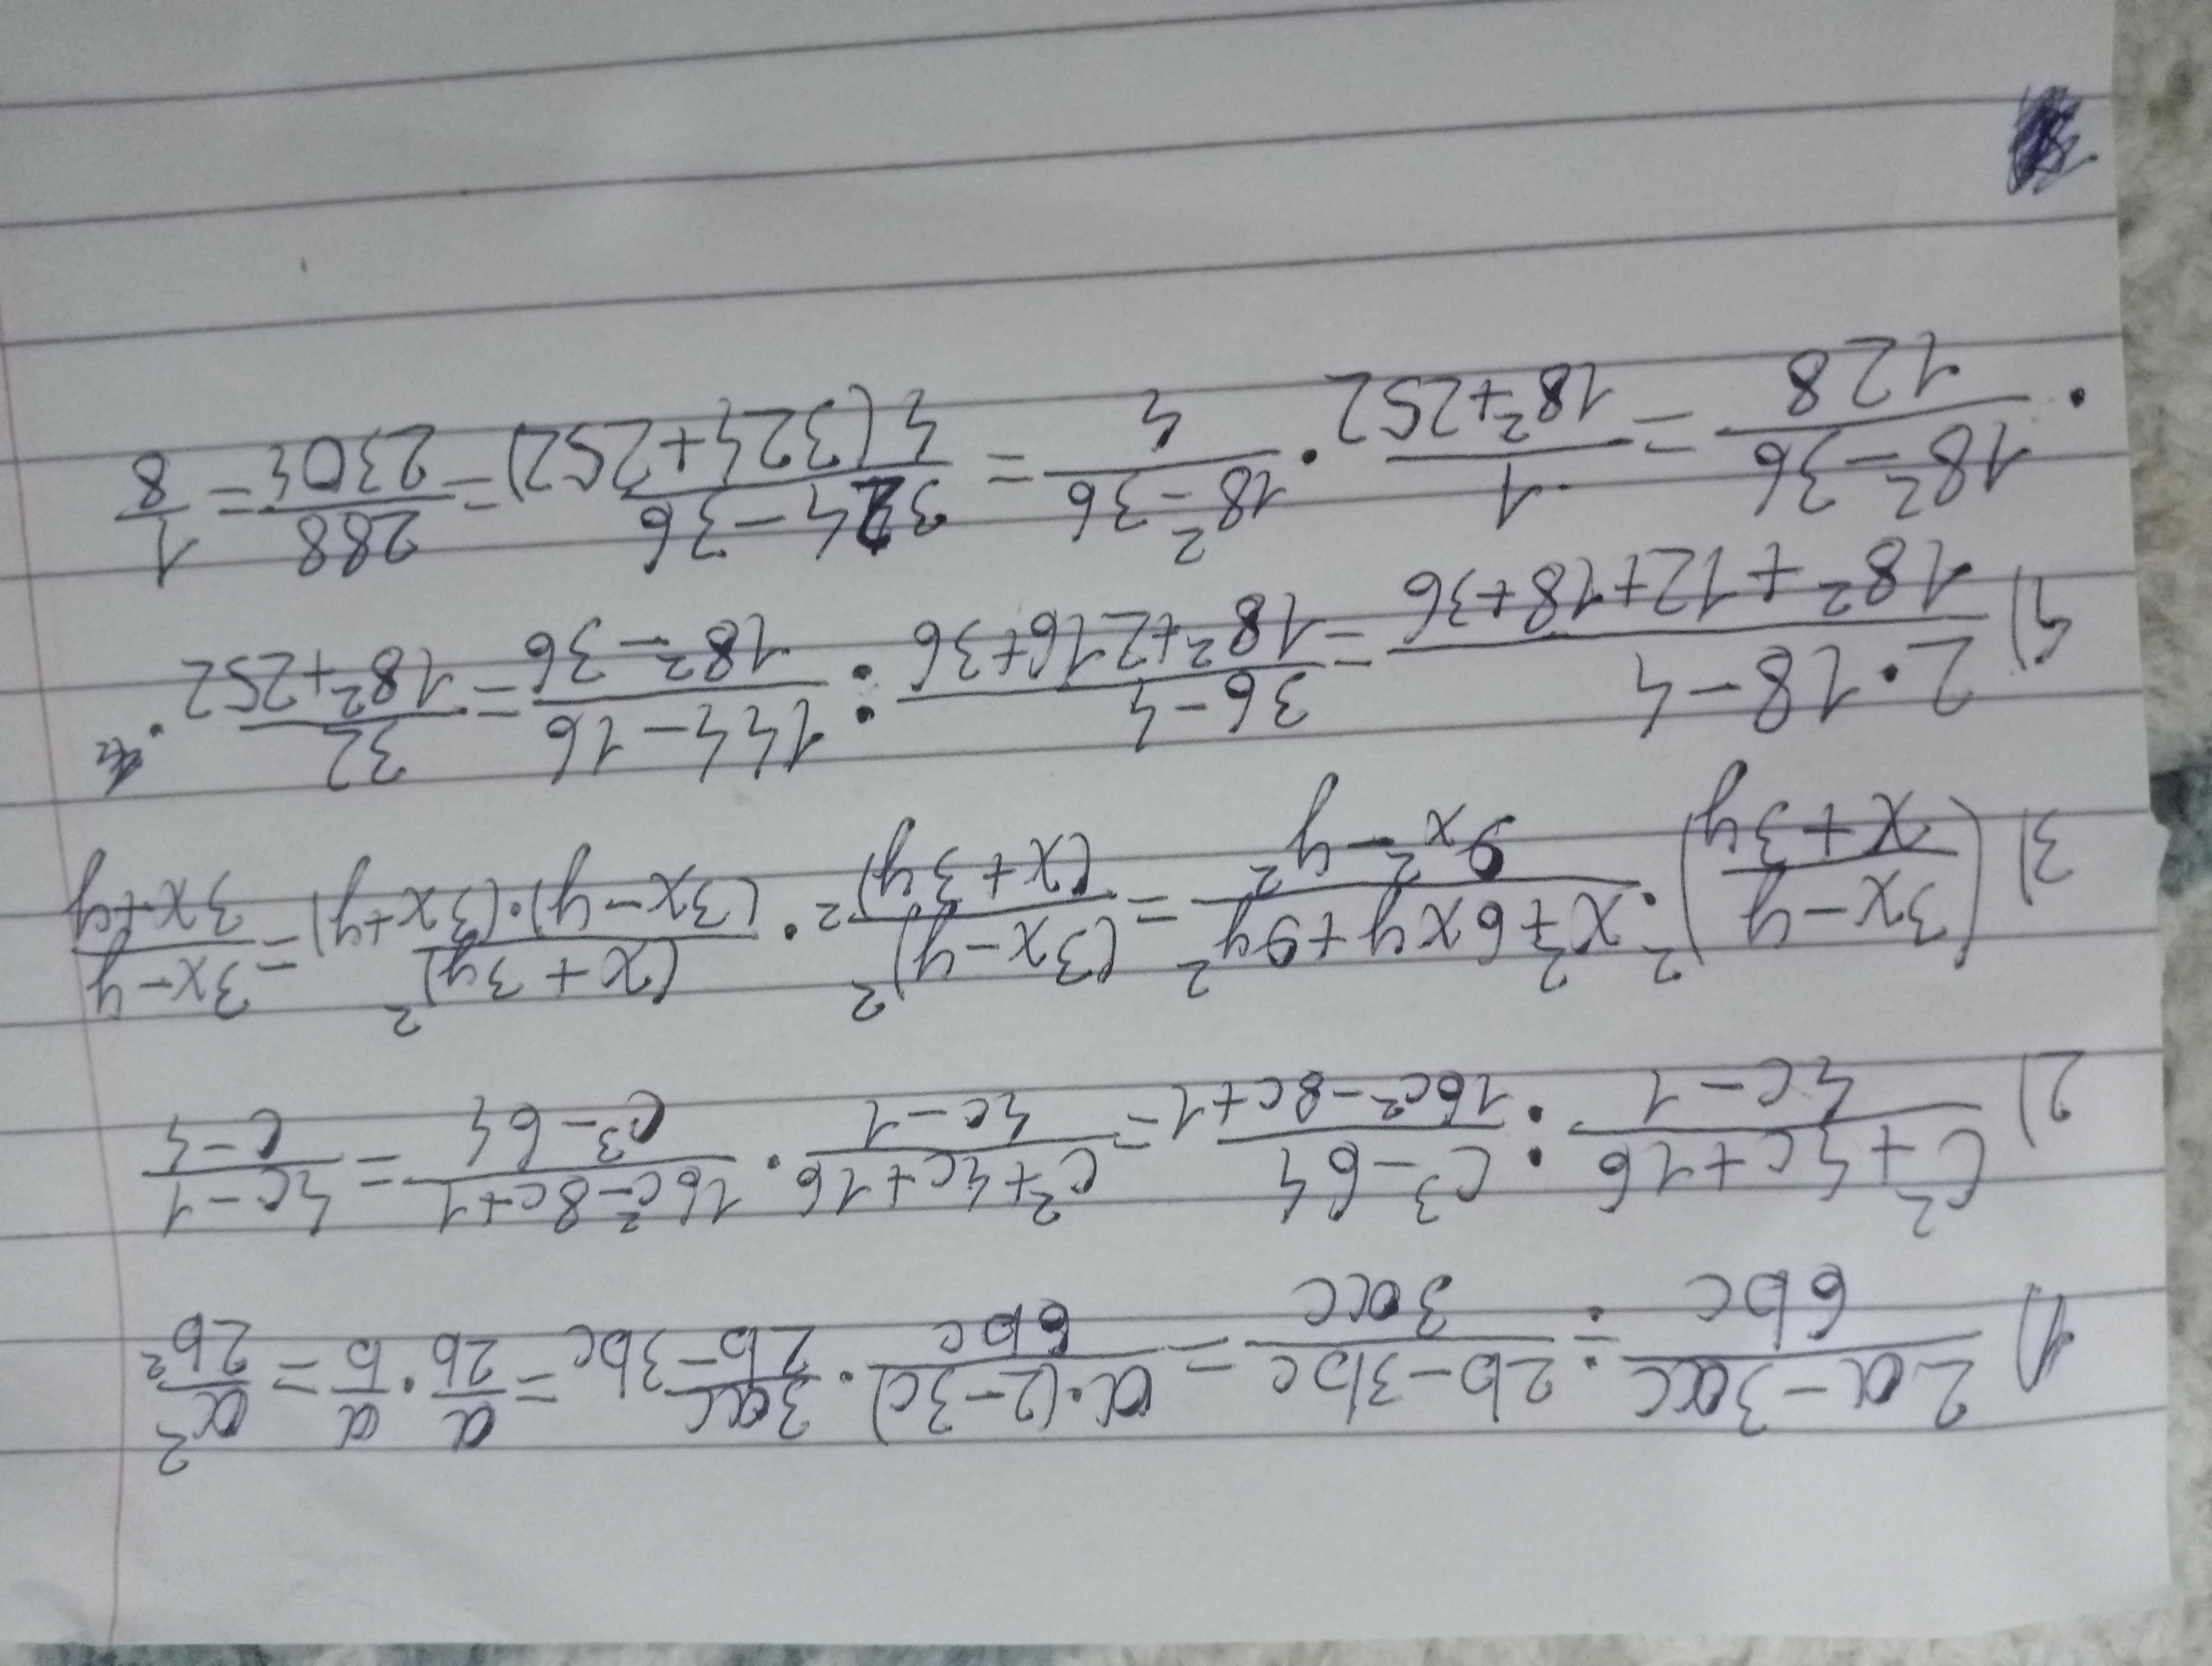 1) (2a-3ac)/(6bc) : (2b-3bc)/(3ac) = (a·(2-3c))/(6bc) · (3ac)/(2b-3bc) = a/(2b) · a/b = a²/(2b²)
2) (c²+4c+16)/(4c-1) : (c³-64)/(16c²-8c+1) = (c²+4c+16)/(4c-1) · (16c²-8c+1)/(c³-64) = (4c-1)/(c-4)
3) ((3x-y)/(x+3y))² · (x²+6xy+9y²)/(9x²-y²) = (3x-y)²/(x+3y)² · (x+3y)²/((3x-y)·(3x+y)) = (3x-y)/(3x+y)
4) (2·18-4)/(18²+12+18+36) = (36-4)/(18²+216+36) : (144-16)/(18²-36) = 32/(18²+252) ·
· (18²-36)/128 = 1/(18²+252) · (18²-36)/4 = (324-36)/(4(324+252)) = 288/2304 = 1/8